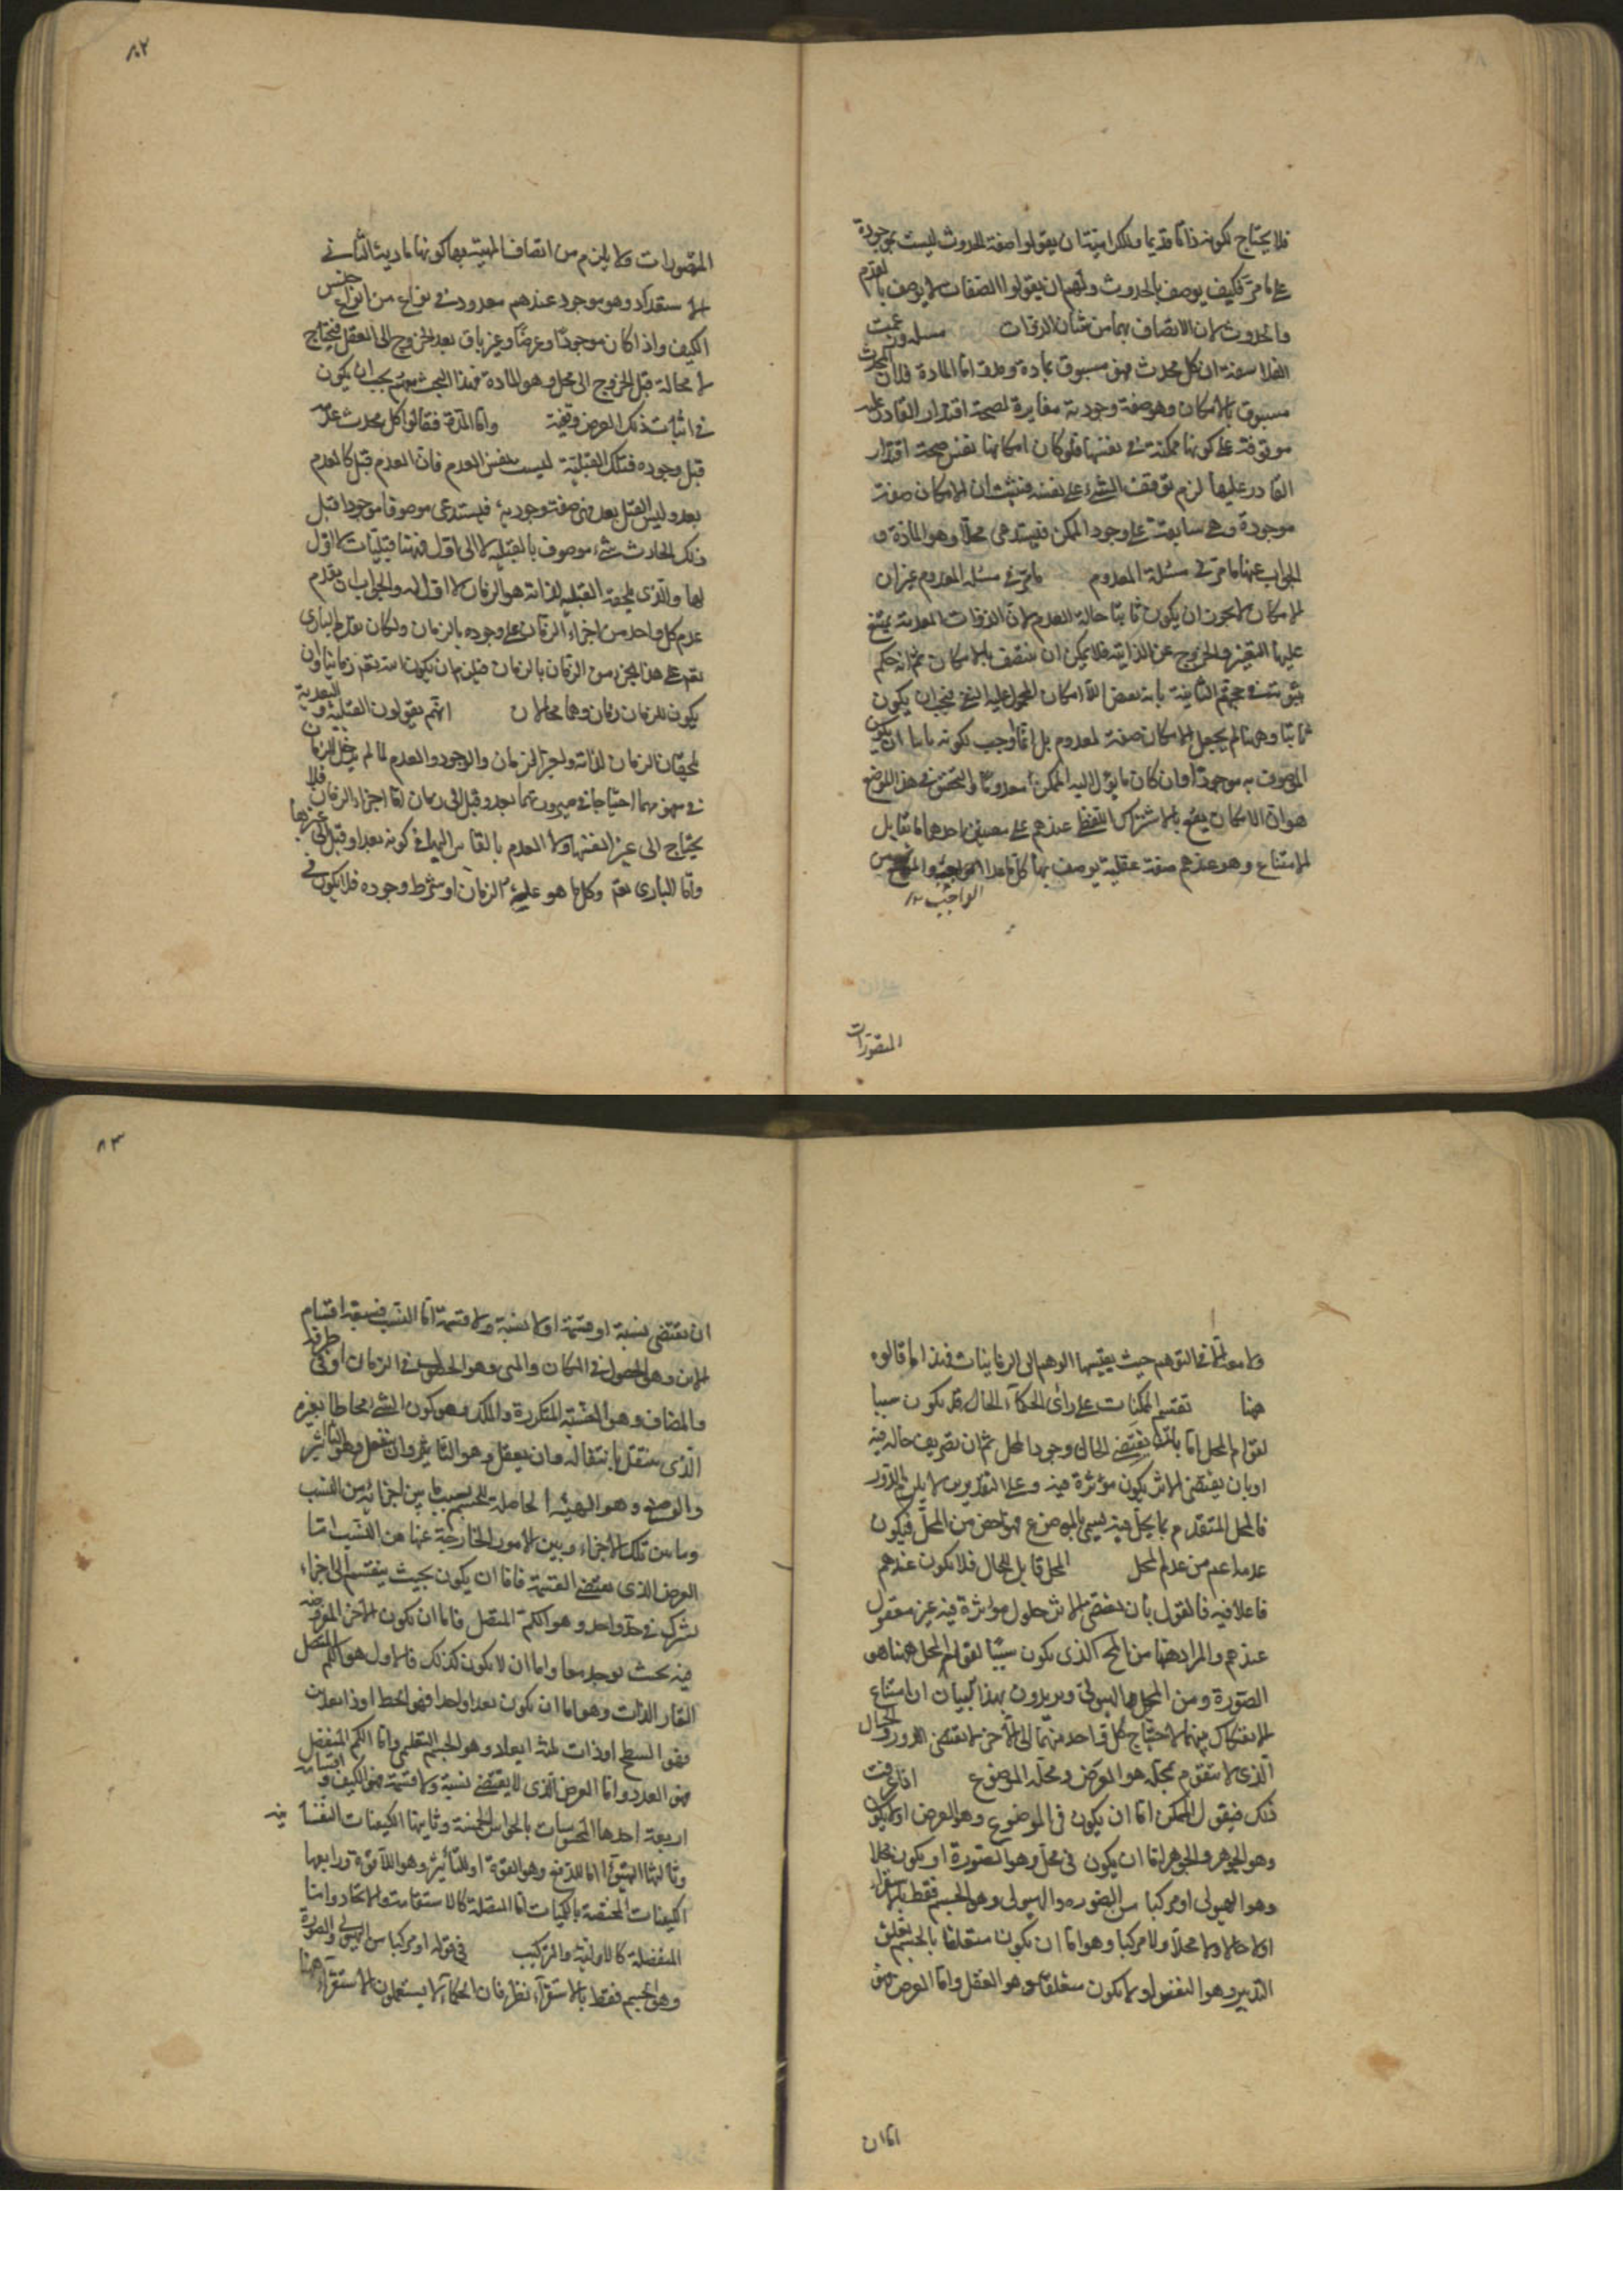 فلا يحتاج لكونه ذاتا قديما وللكرامية ان يقولوا صفة الحدوث ليست بموجودة
على ما مرّ فكيف يوصف بالحدوث ولهم ان يقولوا الصفات لا يوصف بالقدم
والحدوث لان الاتصاف بهما من شان الذوات مسئلة وزعمت
الفلاسفة ان كل محدث فهو مسبوق بمادة ومدة امّا المادة فلان المحدث
مسبوق بالامكان وهو صفة وجودية مغايرة لصحة اقتدار القادر عليه
موقوفة على كونها ممكنة في نفسها فلو كان امكانها نفس صحة اقتدار
القادر عليها لزم توقف الشئ على نفسه فثبت ان الامكان صفة
موجودة وهى سابقة على وجود الممكن فيستدعى محلا وهو المادة و
الجواب عنها ما مرّ في مسئلة المعدوم ما مرّ في مسئلة المعدوم هو ان
الامكان لا يجوز ان يكون ثابتا حالة العدم لان الذوات المعدومة يمتنع
عليها التغير والخروج عن الذاتية فلا يمكن ان يتصف بالامكان ثم انه حكم
بثبوته في حجتهم الثانية بانه بعض الامكان المحمول عليه النفى فيجب ان يكون
ثابتا وههنا لم يجعل الامكان صفة لمعدوم بل انما اوجب لكونه ثابتا ان يكون
الموصوف به موجودا وان كان ما يؤل اليه الممكن معدوما والتحقيق في هذا الموضع
هو ان الامكان يقع بالاشتراك اللفظى عندهم على معنيين احدهما ما يقابل
الامتناع وهو عندهم صفة عقلية يوصف بها كل ما عدا الواجب والممتنع من
المتصورات
المتصورات ولا يلزم من اتصاف المهية بها كونها مادية الثانى
الاستعداد وهو موجود عندهم معدود في نوع من انواع جنس
الكيف واذا كان موجودا وعرضا وغير باق بعد الخروج الى الفعل فيحتاج
لا محالة قبل الخروج الى محل وهو المادة فهذا البحث معهم يجب ان يكون
في اثبات ذلك العرض ونفيه وامّا المدة فقالوا كل محدث عدمه
قبل وجوده فتلك القبلية ليست نفس العدم فان العدم قبل كالعدم
بعد وليس القبل بعد فهى صفة وجودية فيستدعى موصوفا موجودا فقبل
ذلك الحادث شئ موصوف بالقبلية لا الى اول فهنا قبليات لا اول
لها والذى يلحقه القبلية لذاته هو الزمان لا اول له والجواب ان تقدم
عدم كل واحد من اجزاء الزمان على وجوده بالزمان ولكان تقدم البارى
تع على هذا الجزء من الزمان بالزمان فيلزم ان يكون الله تع زمانيا وان
يكون للزمان زمان وهما محالان انهم يقولون القبلية والبعدية
تلحقان الزمان لذاته ولغير الزمان والوجود والعدم لما لم يدخل الزمان
في مفهومهما احتاجا في صيرورتهما بعد وقبل الى زمان امّا اجزاء الزمان فلا
يحتاج الى غير انفسها ولا العدم بالقياس اليها في كونه بعدا وقبل الى غيرها
وامّا البارى تع وكل ما هو علة الزمان او شرط وجوده فلا يكون في
ولا معه الا في التوهم حيث يقيسها الوهم الى الزمانيات فهذا ما قالوه
ههنا تقسيم الممكنات على رأى الحكماء الحال قد يكون سببا
لقوام المحل امّا بان يقتضى الحال وجود المحل ثم ان تصير يصف حاله فيه
او بان يقتضى لاثر يكون مؤثرة فيه وعلى التقديرين لا يلزم الدور
فالمحل المتقدم بما يحل فيه يسمى بالموضوع فهو اخص من المحل فيكون
عدمه اعم من عدم المحل المحل قابل للحال فلا يكون عندهم
فاعلا فيه فالقول بان يقتضى لاثر حلول مؤثرة فيه غير معقول
عندهم والمراد ههنا من الحال الذى يكون سببا لقوام المحل ههنا هو
الصورة ومن المحل الهيولى ويريدون بهذا البيان ان امتناع
الانفكاك بينهما لاحتياج كل واحد منهما الى الآخر لا يقتضى الدور والحال
الذى لا يتقوم بمحله هو العرض ومحله الموضوع اذا عرفت
ذلك فيقول الممكن امّا ان يكون في الموضوع وهو العرض او لا يكون
وهو الجوهر والجوهر امّا ان يكون في محل وهو الصورة او يكون محلا
وهو الهيولى او مركبا من الصورة والهيولى وهو الجسم فقط بالاستقراء
او لا حالا ولا محلا ولا مركبا وهو امّا ان يكون متعلقا بالجسم تعلق
التدبير وهو النفس او لا يكون متعلقا وهو العقل وامّا العرض فهو
امّا ان
ان يقتضى نسبة او قسمة او لا نسبة ولا قسمة امّا النسب فسبعة اقسام
الاين وهو الحصول في المكان والمتى وهو الحصول في الزمان او في طرفه
والمضاف وهو النسبة المتكررة والملك وهو كون الشئ محاطا بغيره
الذى ينتقل بانتقاله وان يفعل وهو التاثير وان ينفعل وهو التاثر
والوضع وهو الهيئة الحاصلة للجسم بسبب ما بين اجزائه من النسب
وما بين تلك الاجزاء وبين الامور الخارجة عنها من النسب امّا
العرض الذى يقتضى القسمة فامّا ان يكون بحيث ينقسم الى اجزاء
تشترك في حد واحد وهو الكم المتصل فامّا ان يكون الاجزاء المفروضة
فيه بحيث يوجد معا وامّا ان لا يكون كذلك فالاول هو الكم المتصل
القار الذات وهو امّا ان يكون بعدا واحدا فهو الخط او ذا بعدين
فهو السطح او ذات ثلثة ابعاد وهو الجسم التعليمى وامّا الكم المنفصل
فهو العدد وامّا العرض الذى لا يقتضى نسبة ولا قسمة فهو الكيف واقسامه
اربعة احدها المحسوسات بالحواس الخمسة وثانيها الكيفيات النفسانية
وثالثها التهيؤ امّا للدفع وهو القوة او للتأثر وهو اللاقوة ورابعها
الكيفيات المختصة بالكميات امّا المتصلة كالاستقامة والانحناء وامّا
المنفصلة كالاولية والتركيب في قوله او مركبا من الهيولى والصورة
وهو الجسم فقط بالاستقراء نظر فان الحكماء لا يستعملون الاستقراء ههنا